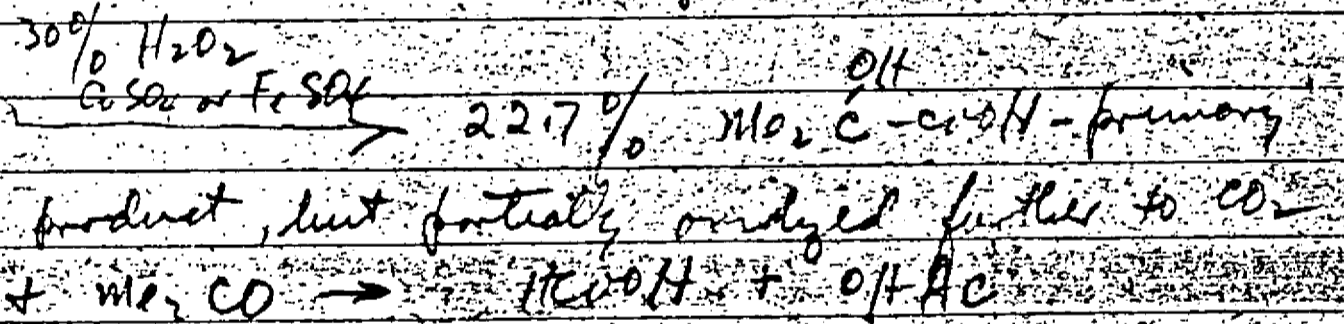 30% H2O2
CuSO4 or FeSO4
OH
22.7% Me2C-COOH - primary
product, but partially oxidized further to CO2
+ Me2CO → HCOOH + OHAc